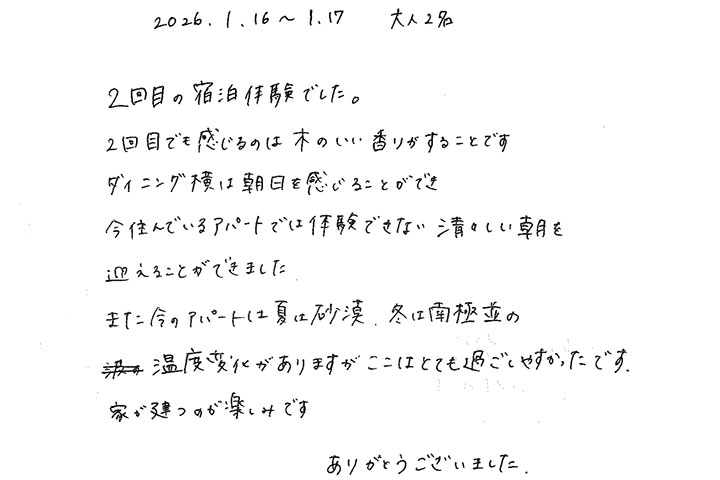 2026.1.16～1.17 大人2名
2回目の宿泊体験でした。
2回目でも感じるのは木のいい香りがすることです
ダイニング横は朝日を感じることができ
今住んでいるアパートでは体験できない清々しい朝を
迎えることができました.
また今のアパートは夏は砂漠.冬は南極並の
温度変化がありますがここはとても過ごしやすかったです.
家が建つのが楽しみです
ありがとうございました.